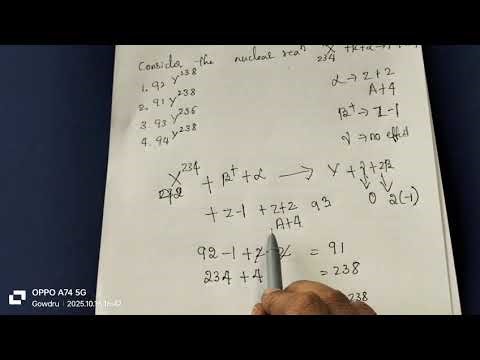 Consider the nuclear reaⁿ X + k + α →
234
1. 92 Y²³⁸
2. 91 Y²³⁸
3. 93 Y²³⁶
4. 94 Y²³⁸
α → Z+2
A+4
β⁺ → Z-1
γ → no effect
X²³⁴ + β⁺ + α → Y + γ + 2β
+ Z-1 + Z+2 93 0 2(-1)
A+4
92-1+2-2 = 91
234+4 = 238
238
OPPO A74 5G
Gowdru | 2025.10.16